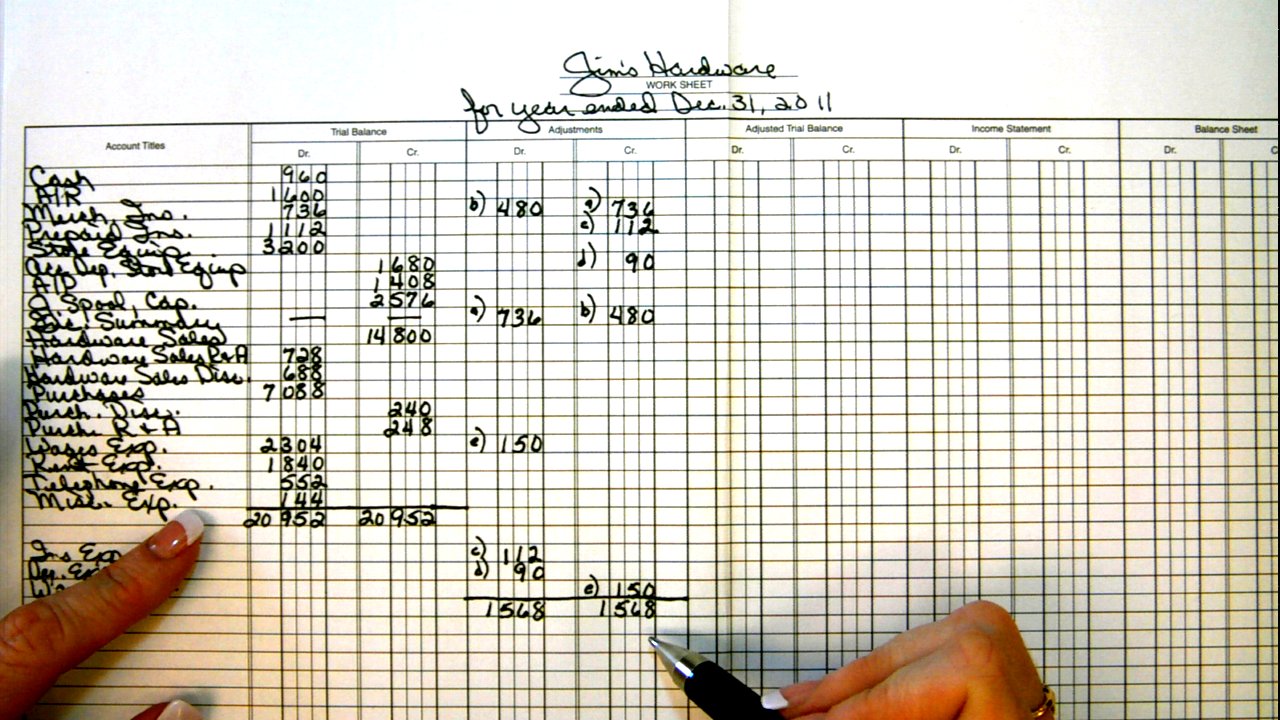 Jim's Hardware
WORK SHEET
for year ended Dec. 31, 2011
Account Titles Trial Balance Adjustments Adjusted Trial Balance Income Statement Balance Sheet
Dr. Cr. Dr. Cr. Dr. Cr. Dr. Cr. Dr. C
Cash 960
A/R 1600
Merch. Inv. 736 b) 480 a) 736
Prepaid Ins. 1112 c) 112
Store Equip. 3200
Acc. Dep. Store Equip 1680 d) 90
A/P 1408
J. Spool, Cap. 2576
Inc. Summary — — a) 736 b) 480
Hardware Sales 14800
Hardware Sales R&A 728
Hardware Sales Disc. 688
Purchases 7088
Purch. Disc. 240
Purch. R & A 248
Wages Exp. 2304 e) 150
Rent Exp. 1840
Telephone Exp. 552
Misc. Exp. 144
20952 20952
Ins Exp c) 112
Dep. d) 90
e) 150
1568 1568